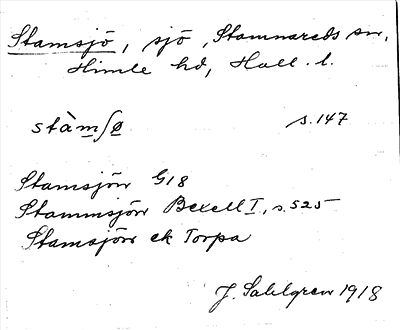 Stamsjö, sjö, Stamnareds sn,
Himle hd, Hall. l.
stàmʃø s.147
Stamsjön G18
Stammsjön Bexell I, s.525
Stamsjön ek Torpa
J. Sahlgren 1918